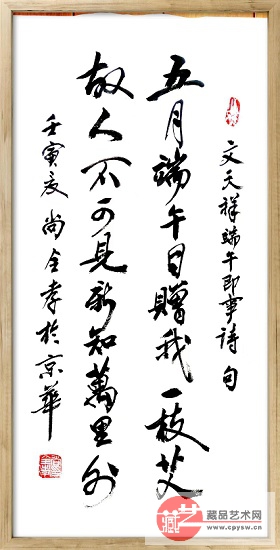 文天祥端午即事诗句
五月端午日赠我一枝艾
故人不可见新知萬里外
壬寅夏尚全孝於京華
藏品艺术网
www.cpysw.cn